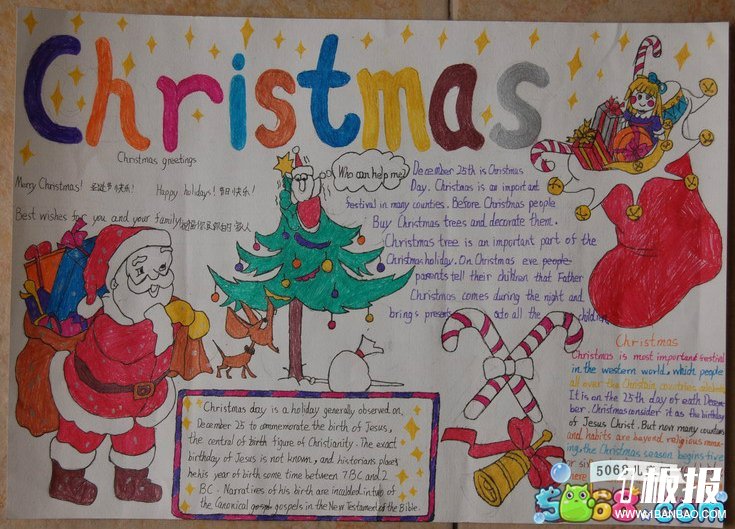 Christmas
Christmas greetings
Merry Christmas! 圣诞节快乐! Happy holidays! 节日快乐!
Best wishes for you and your family.
Who can help me?
December 25th is Christmas
Day. Christmas is an important
festival in many countries. Before Christmas people
Buy Christmas trees and decorate them.
Christmas tree is an important part of the
Christmas holiday. On Christmas eve, people
parents tell their children that Father
Christmas comes during the night and
brings presents to all the children
Christmas
Christmas is most important festival
in the western world, which people
all over the countries
It is on the 25th day of each Decem
ber. Christmas consider it as the birthday
of Jesus Christ. But now many
and habits are beyond religious
the Christmas season begins five
Christmas day is a holiday generally observed on
December 25 to commemorate the birth of Jesus,
the central of birth figure of Christianity. The exact
birthday of Jesus is not known, and historians places
he his year of birth some time between 7 BC and 2
BC. Narratives of his birth are included in two of
the Canonical gospels in the New Testament of the Bible.
5068
板报
WWW.1BANBAO.COM